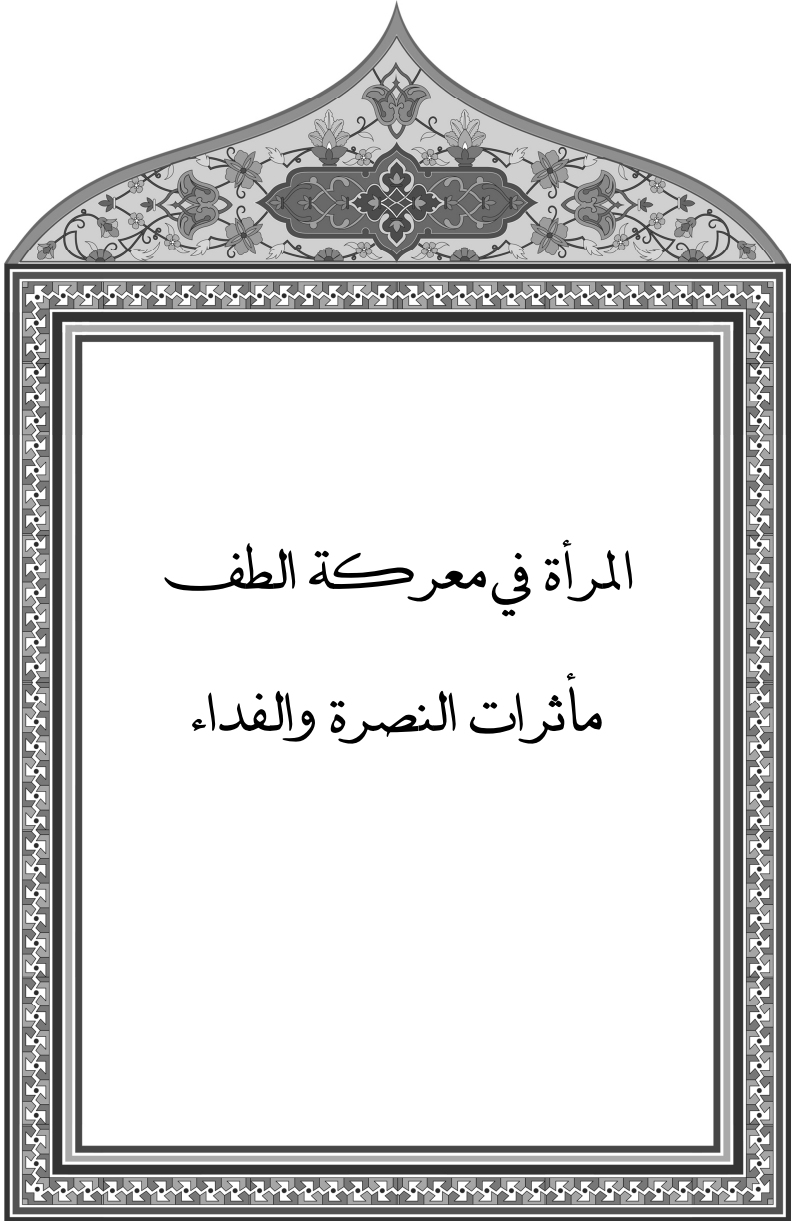 المرأة في معركة الطف
مأثرات النصرة والفداء